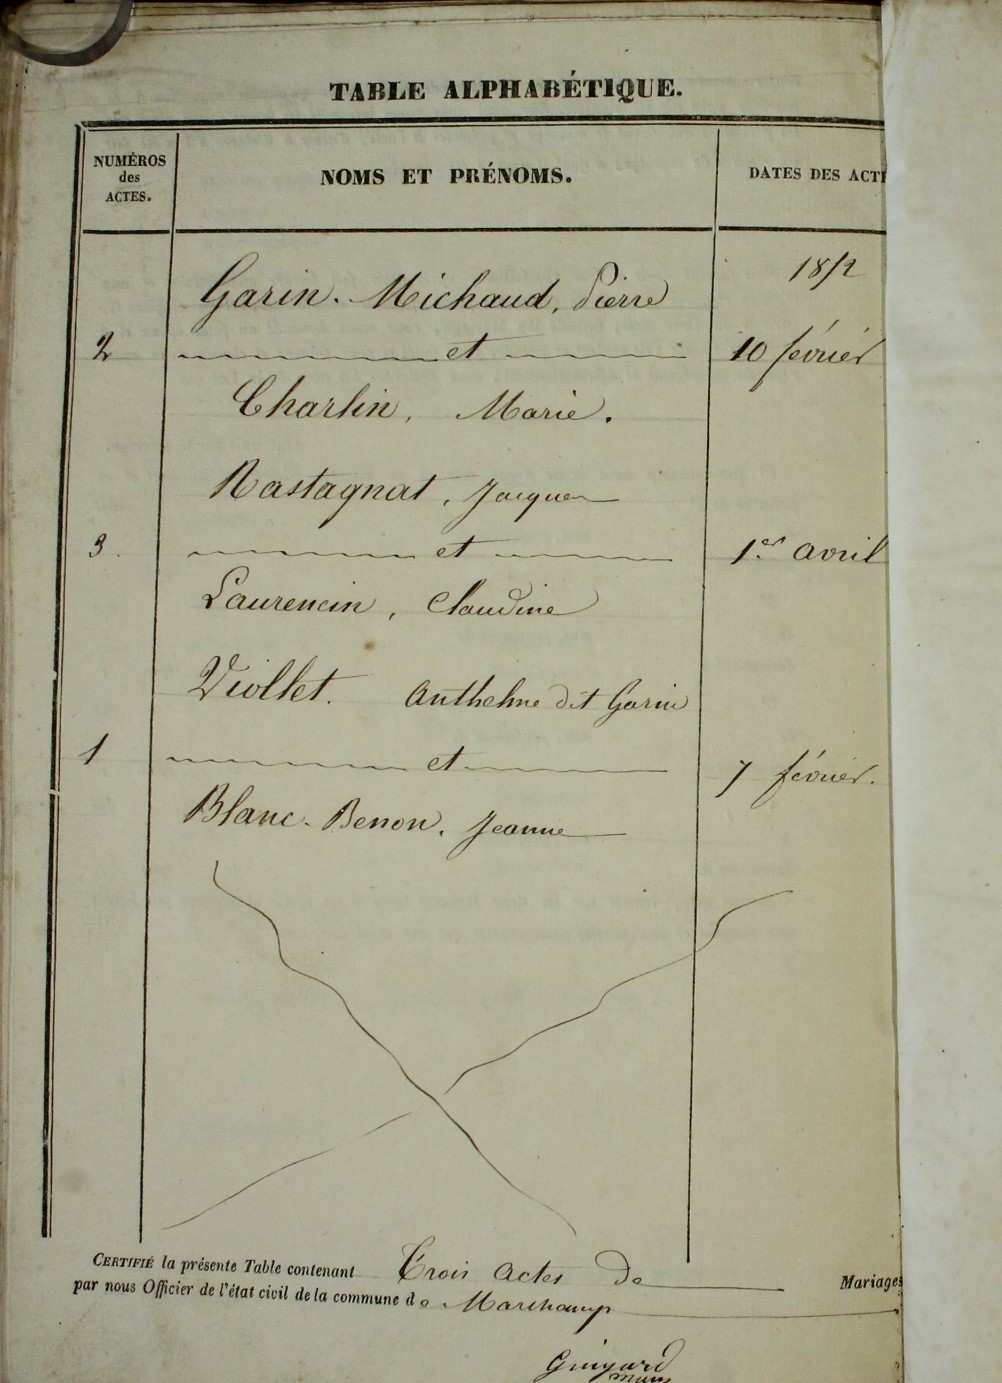 TABLE ALPHABÉTIQUE.
NUMÉROS
des
ACTES.
NOMS ET PRÉNOMS.
DATES DES ACT
Garin-Michaud, Pierre
2 et 10 février
Charlin, Marie.
Rastagnat, Jacques
3. et 1.er avril
Laurencin, Claudine
Viollet. Anthelme dit Garin
1 et 7 février.
Blanc-Benon, Jeanne
CERTIFIÉ la présente Table contenant Trois actes de Mariages
par nous Officier de l'état civil de la commune de Marchamp
Guigard